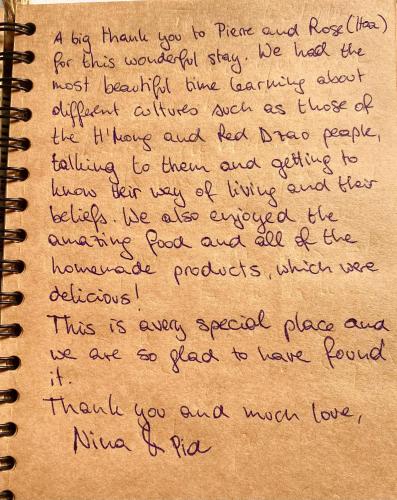 A big thank you to Pierre and Rose (Hoa)
for this wonderful stay. We had the
most beautiful time learning about
different cultures such as those of
the H'Mong and Red Dzao people,
talking to them and getting to
know their way of living and their
beliefs. We also enjoyed the
amazing food and all of the
homemade products, which were
delicious!
This is avery special place and
we are so glad to have found
it.
Thank you and much love,
Nina & Pia